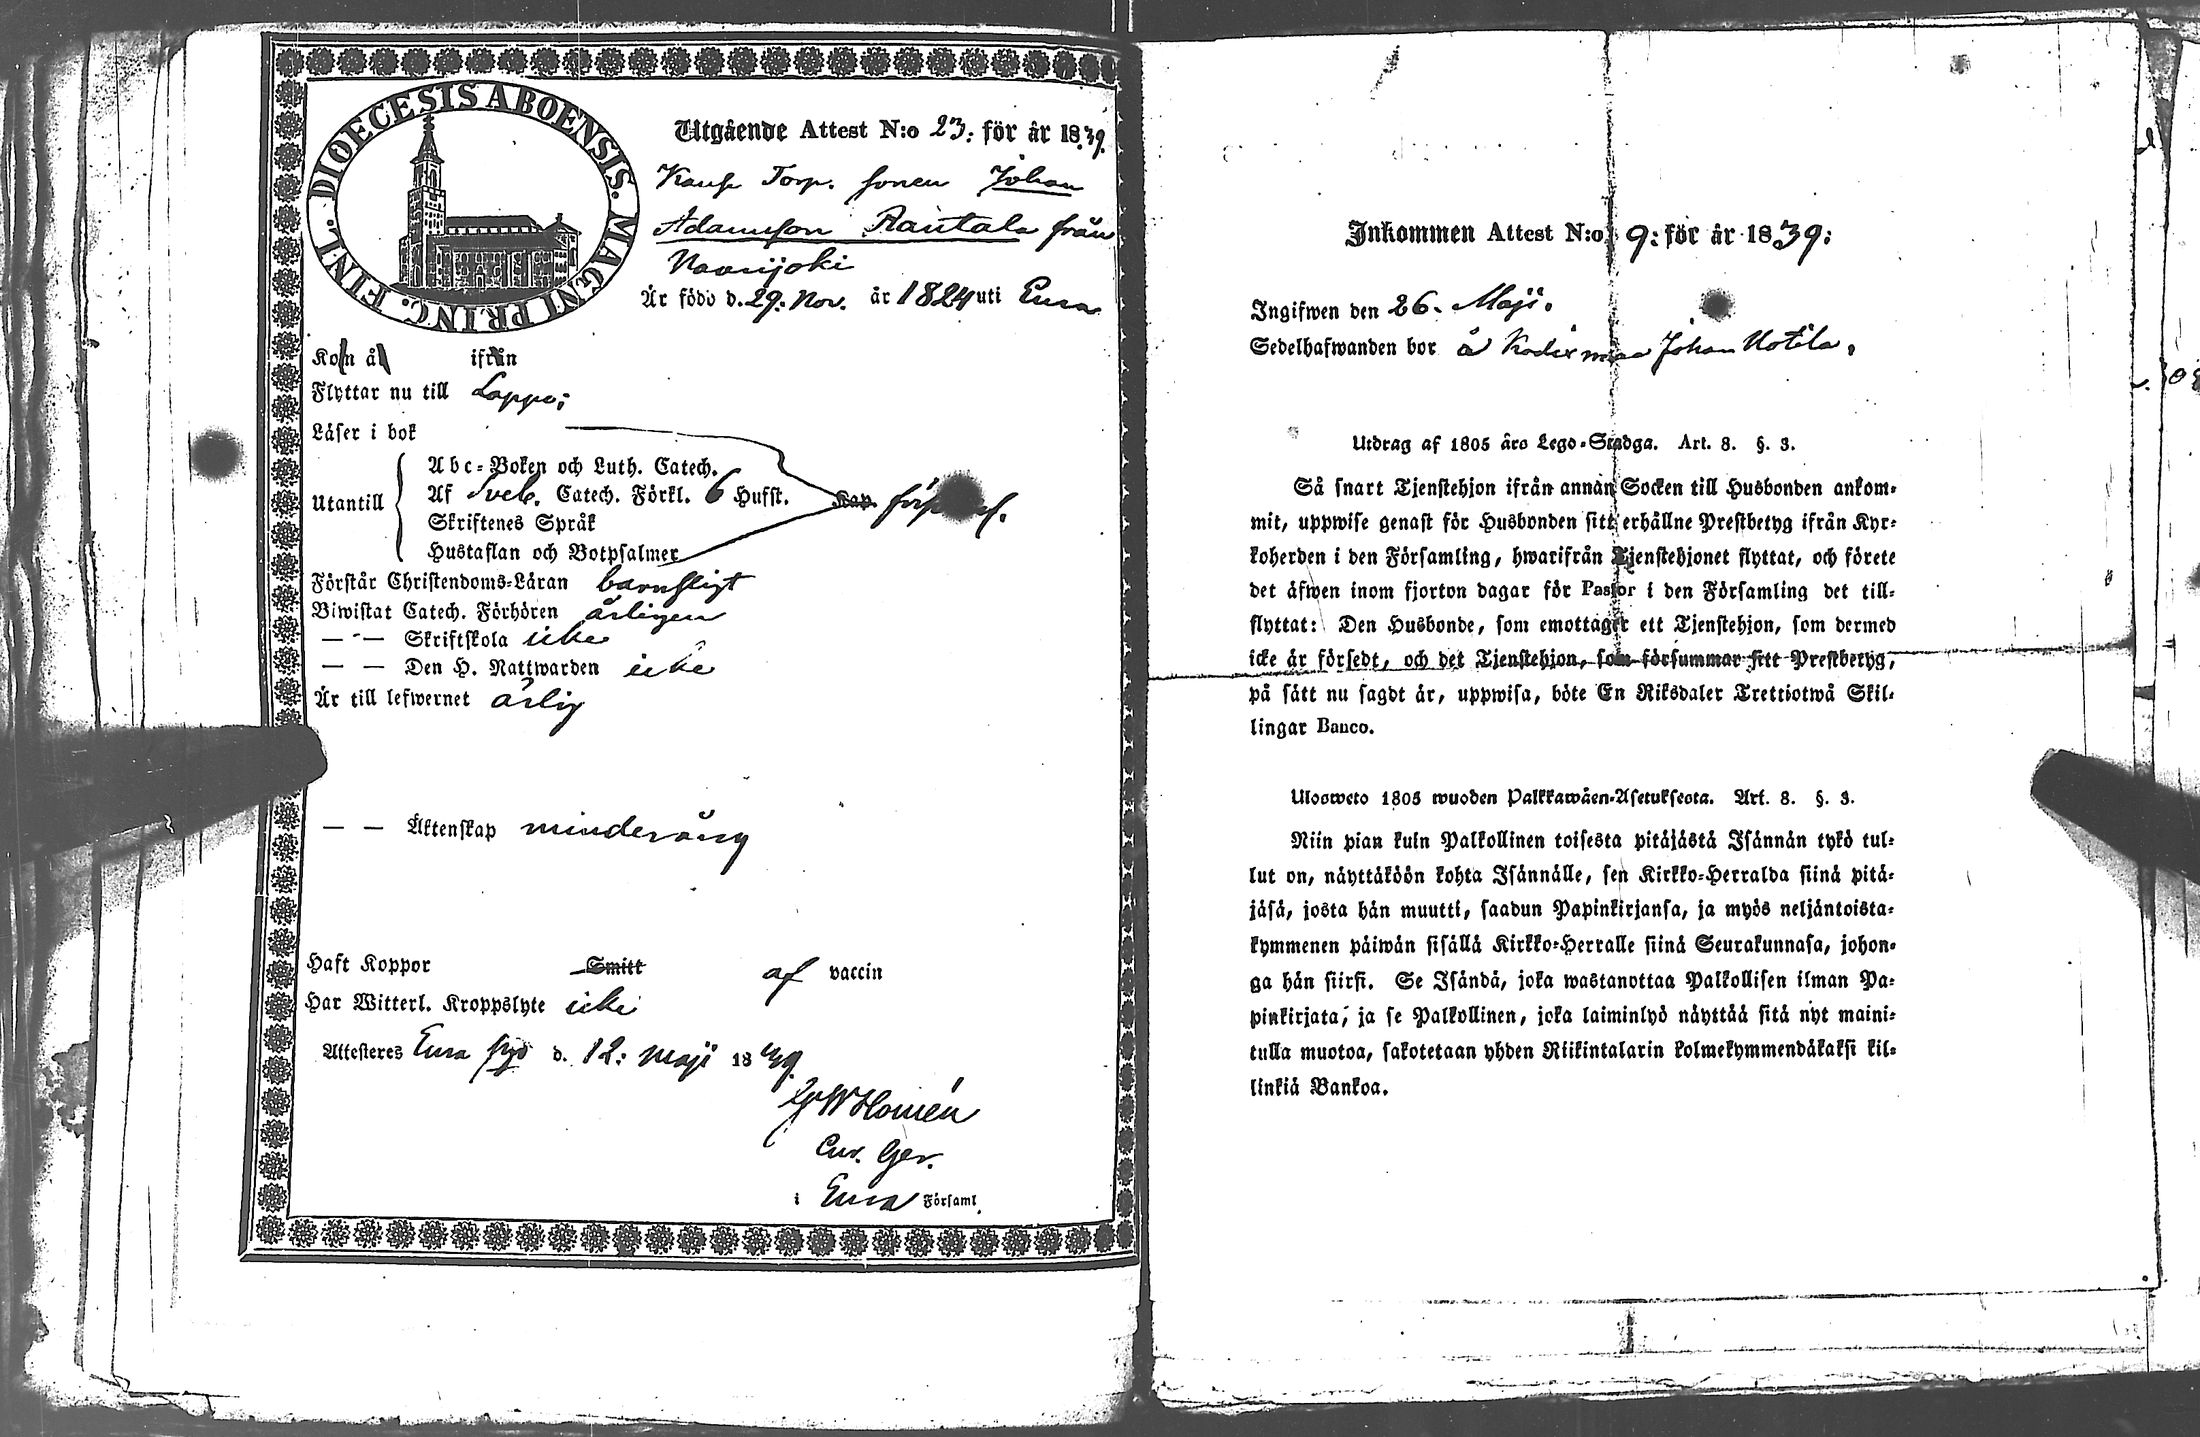 DIOECESIS ABOENSIS. MAGNI PRINC. FINL.
Utgående Attest N:o 23: för år 1839.
Torp. sonen Johan
Adamsson Rautala från
Är född d. 29: Nov. år 1824 uti Eura
Kom år ifrån
Flyttar nu till Lappo;
Läser i bok
Abc-Boken och Luth. Catech.
Utantill
Af Sveb. Catech. Förkl. 6 Hufst.
Skriftenes Språk
Hustaflan och Botpsalmer
Förstår Christendoms-Läran barnsligt
Biwistat Catech. Förhören årligen
— " — Skriftskola icke
— — Den H. Nattwarden icke
Är till lefwernet ärlig
— — Äktenskap minderårig
Haft Koppor Smitt af vaccin
Har Witterl. Kroppslyte icke
Attesteres Eura d. 12: Maji 1839.
Homén
Cur. Ger.
i Eura Församl.
Inkommen Attest N:o 9: för år 1839:
Ingifwen den 26. Maji.
Sedelhafwanden bor å Johan Uotila.
Utdrag af 1805 års Lego-Stadga. Art. 8. §. 3.
Så snart Tjenstehjon ifrån annan Socken till Husbonden ankom-
mit, uppwise genast för Husbonden sitt erhållne Prestbetyg ifrån Kyr-
koherden i den Församling, hwarifrån Tjenstehjonet flyttat, och förete
det äfwen inom fjorton dagar för Pastor i den Församling det till-
flyttat: Den Husbonde, som emottager ett Tjenstehjon, som dermed
icke är försedt, och det Tjenstehjon, som försummar sitt Prestbetyg,
på sätt nu sagdt är, uppwisa, böte En Riksdaler Trettiotwå Skil-
lingar Banco.
Ulosweto 1805 wuoden Palkkawäen-Asetuksesta. Art. 8. §. 3.
Niin pian kuin Palkollinen toisesta pitäjästä Isännän tykö tul-
lut on, näyttäköön kohta Isännälle, sen Kirkko-Herralda siinä pitä-
jäsä, josta hän muutti, saadun Papinkirjansa, ja myös neljäntoista-
kymmenen päiwän sisällä Kirkko-Herralle siinä Seurakunnasa, johon-
ga hän siirsi. Se Isändä, joka wastanottaa Palkollisen ilman Pa-
pinkirjata, ja se Palkollinen, joka laiminlyö näyttää sitä nyt maini-
tulla muotoa, sakotetaan yhden Riikintalarin kolmekymmendäkaksi kil-
linkiä Bankoa.